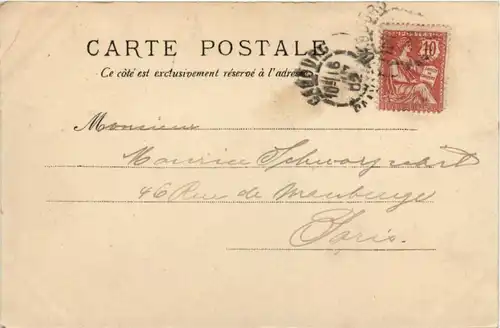 CARTE POSTALE
Ce côté est exclusivement réservé à l'adresse
POSTES
10
Monsieur
Maurice
46 Rue de Maubeuge
Paris.